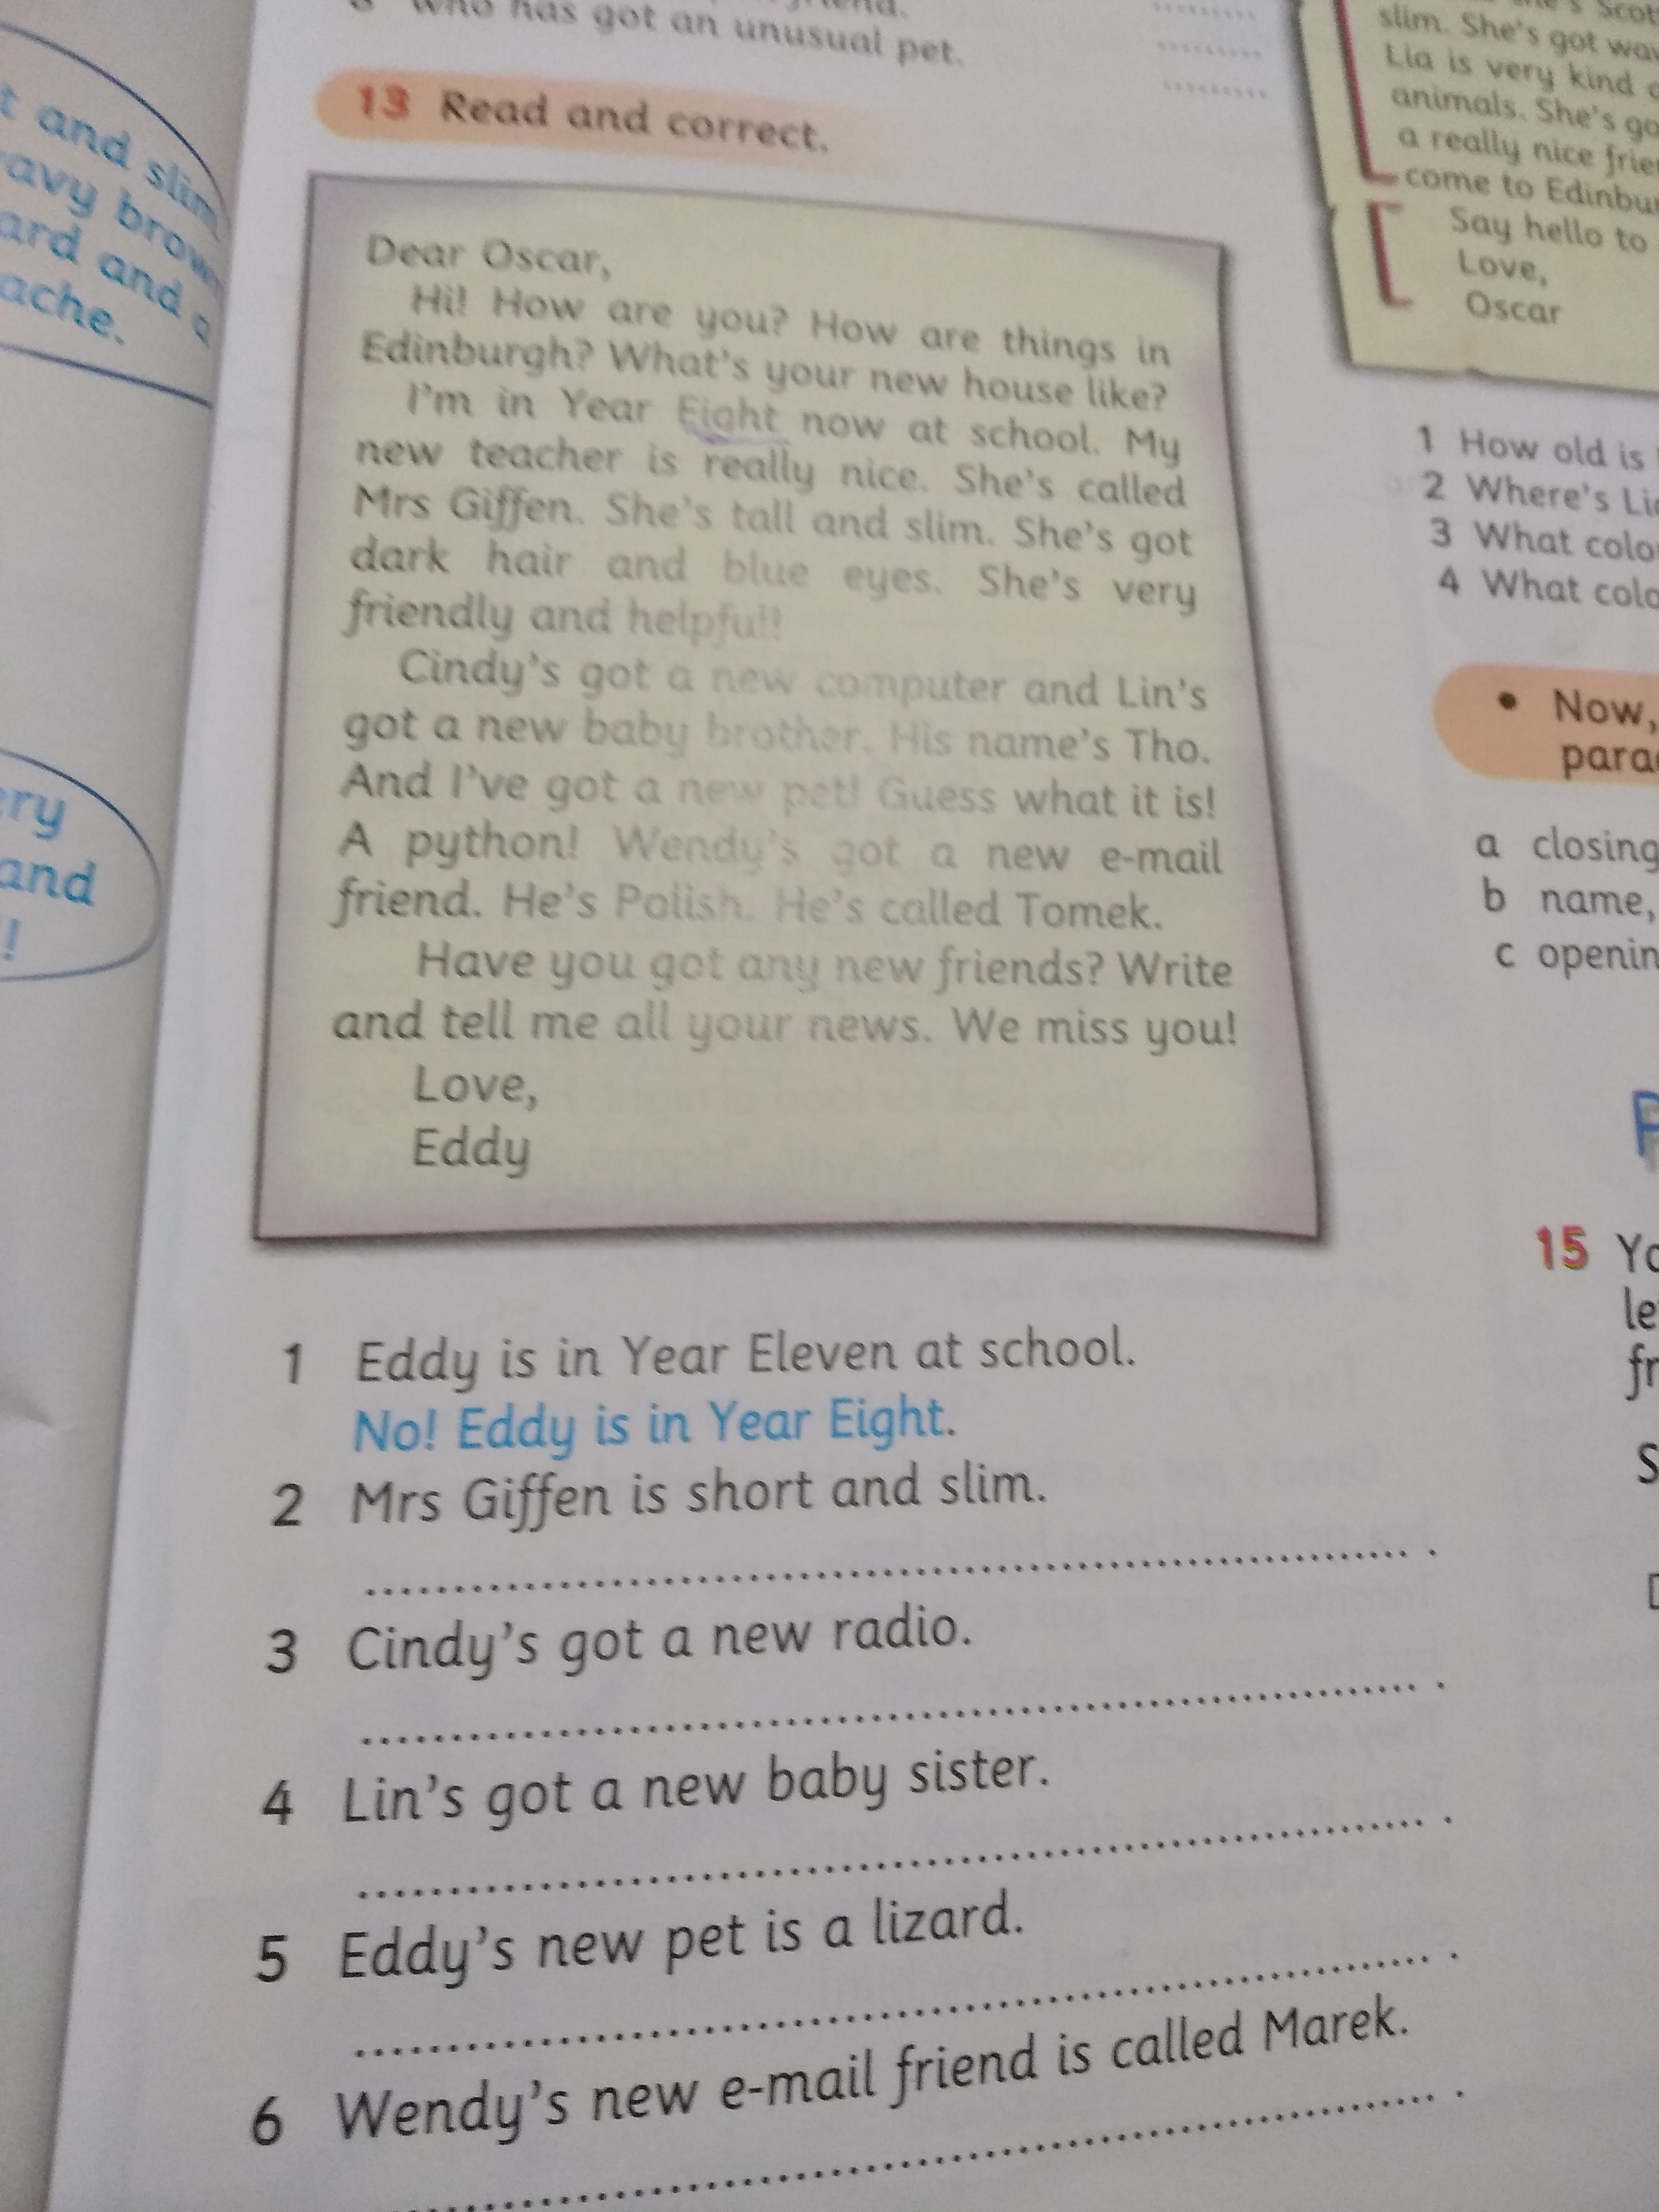 who has got an unusual pet.
13 Read and correct.
Dear Oscar,
Hi! How are you? How are things in
Edinburgh? What's your new house like?
I'm in Year Eight now at school. My
new teacher is really nice. She's called
Mrs Giffen. She's tall and slim. She's got
dark hair and blue eyes. She's very
friendly and helpful!
Cindy's got a new computer and Lin's
got a new baby brother. His name's Tho.
And I've got a new pet! Guess what it is!
A python! Wendy's got a new e-mail
friend. He's Polish. He's called Tomek.
Have you got any new friends? Write
and tell me all your news. We miss you!
Love,
Eddy
1 Eddy is in Year Eleven at school.
No! Eddy is in Year Eight.
2 Mrs Giffen is short and slim.
3 Cindy's got a new radio.
4 Lin's got a new baby sister.
5 Eddy's new pet is a lizard.
6 Wendy's new e-mail friend is called Marek.
and slim
brown
and a
and
slim. She's got
Lia is very kind
animals. She's
a really nice
come to
Say hello to
Love,
Oscar
1 How old is
2 Where's
3 What
4 What
• Now,
a closing
b name,
c
15